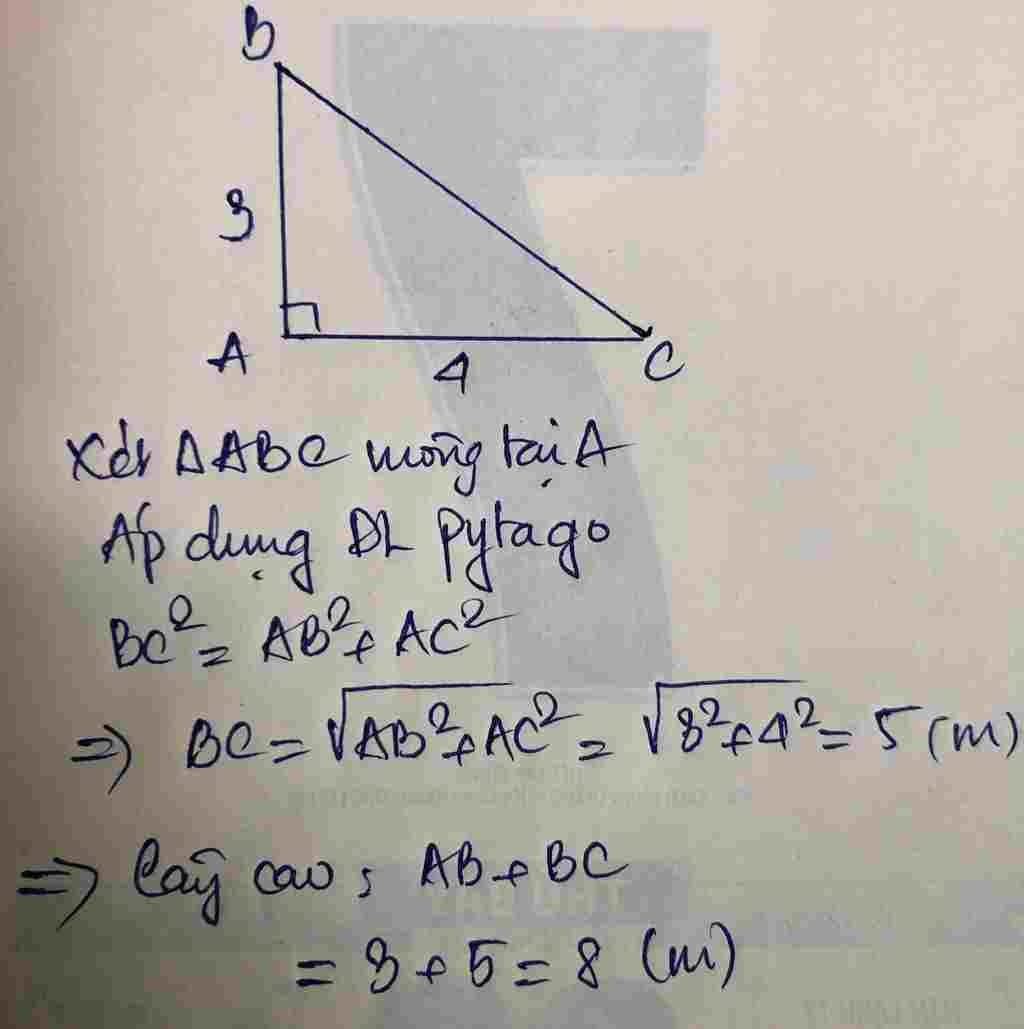 B
3
A
4
C
Xét ΔABC vuông tại A
Áp dụng ĐL pytago
BC² = AB² + AC²
=> BC = √AB² + AC² = √3² + 4² = 5 (m)
=> Cây cao : AB + BC
= 3 + 5 = 8 (m)
THỨ BẢY